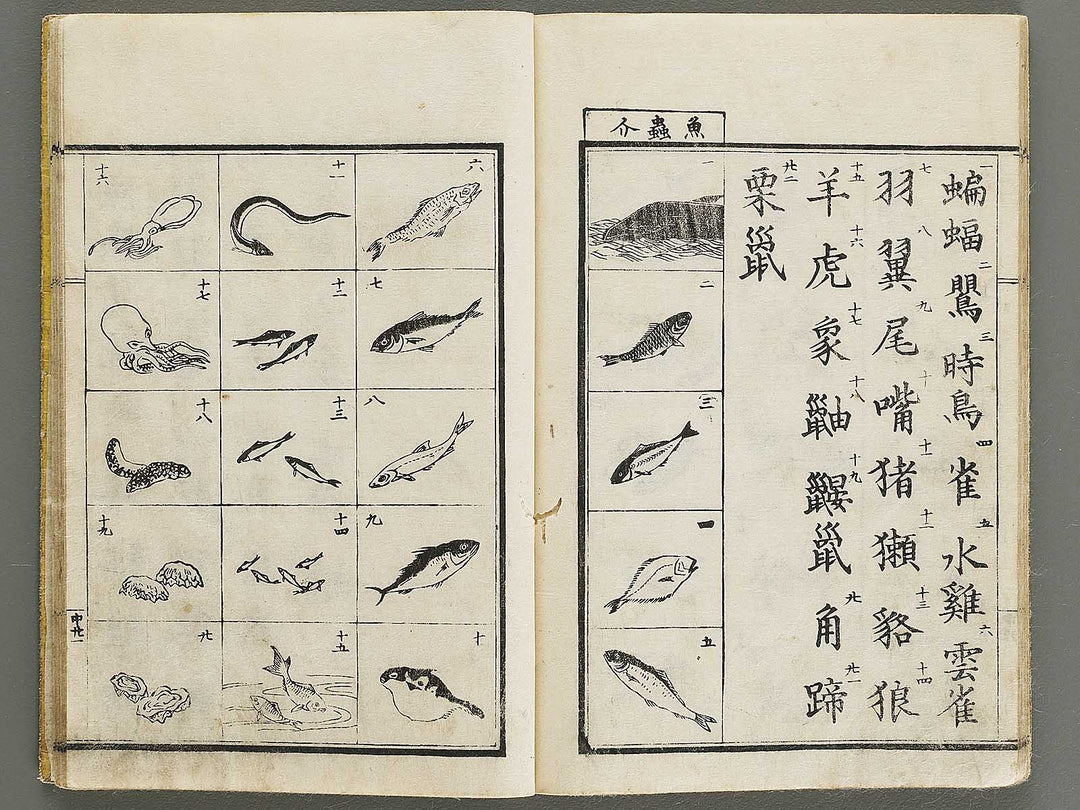 一蝙蝠二鸎三時鳥四雀五水雞六雲雀
七羽八翼九尾十嘴十一猪十二獺十三貉十四狼
十五羊十六虎十七象十八鼬十九鼴鼠廿角廿一蹄
廿二栗鼠
魚蟲介
一
二
三
一
五
六
七
八
九
十
十一
十二
十三
十四
十五
十六
十七
十八
十九
廿
中廿一